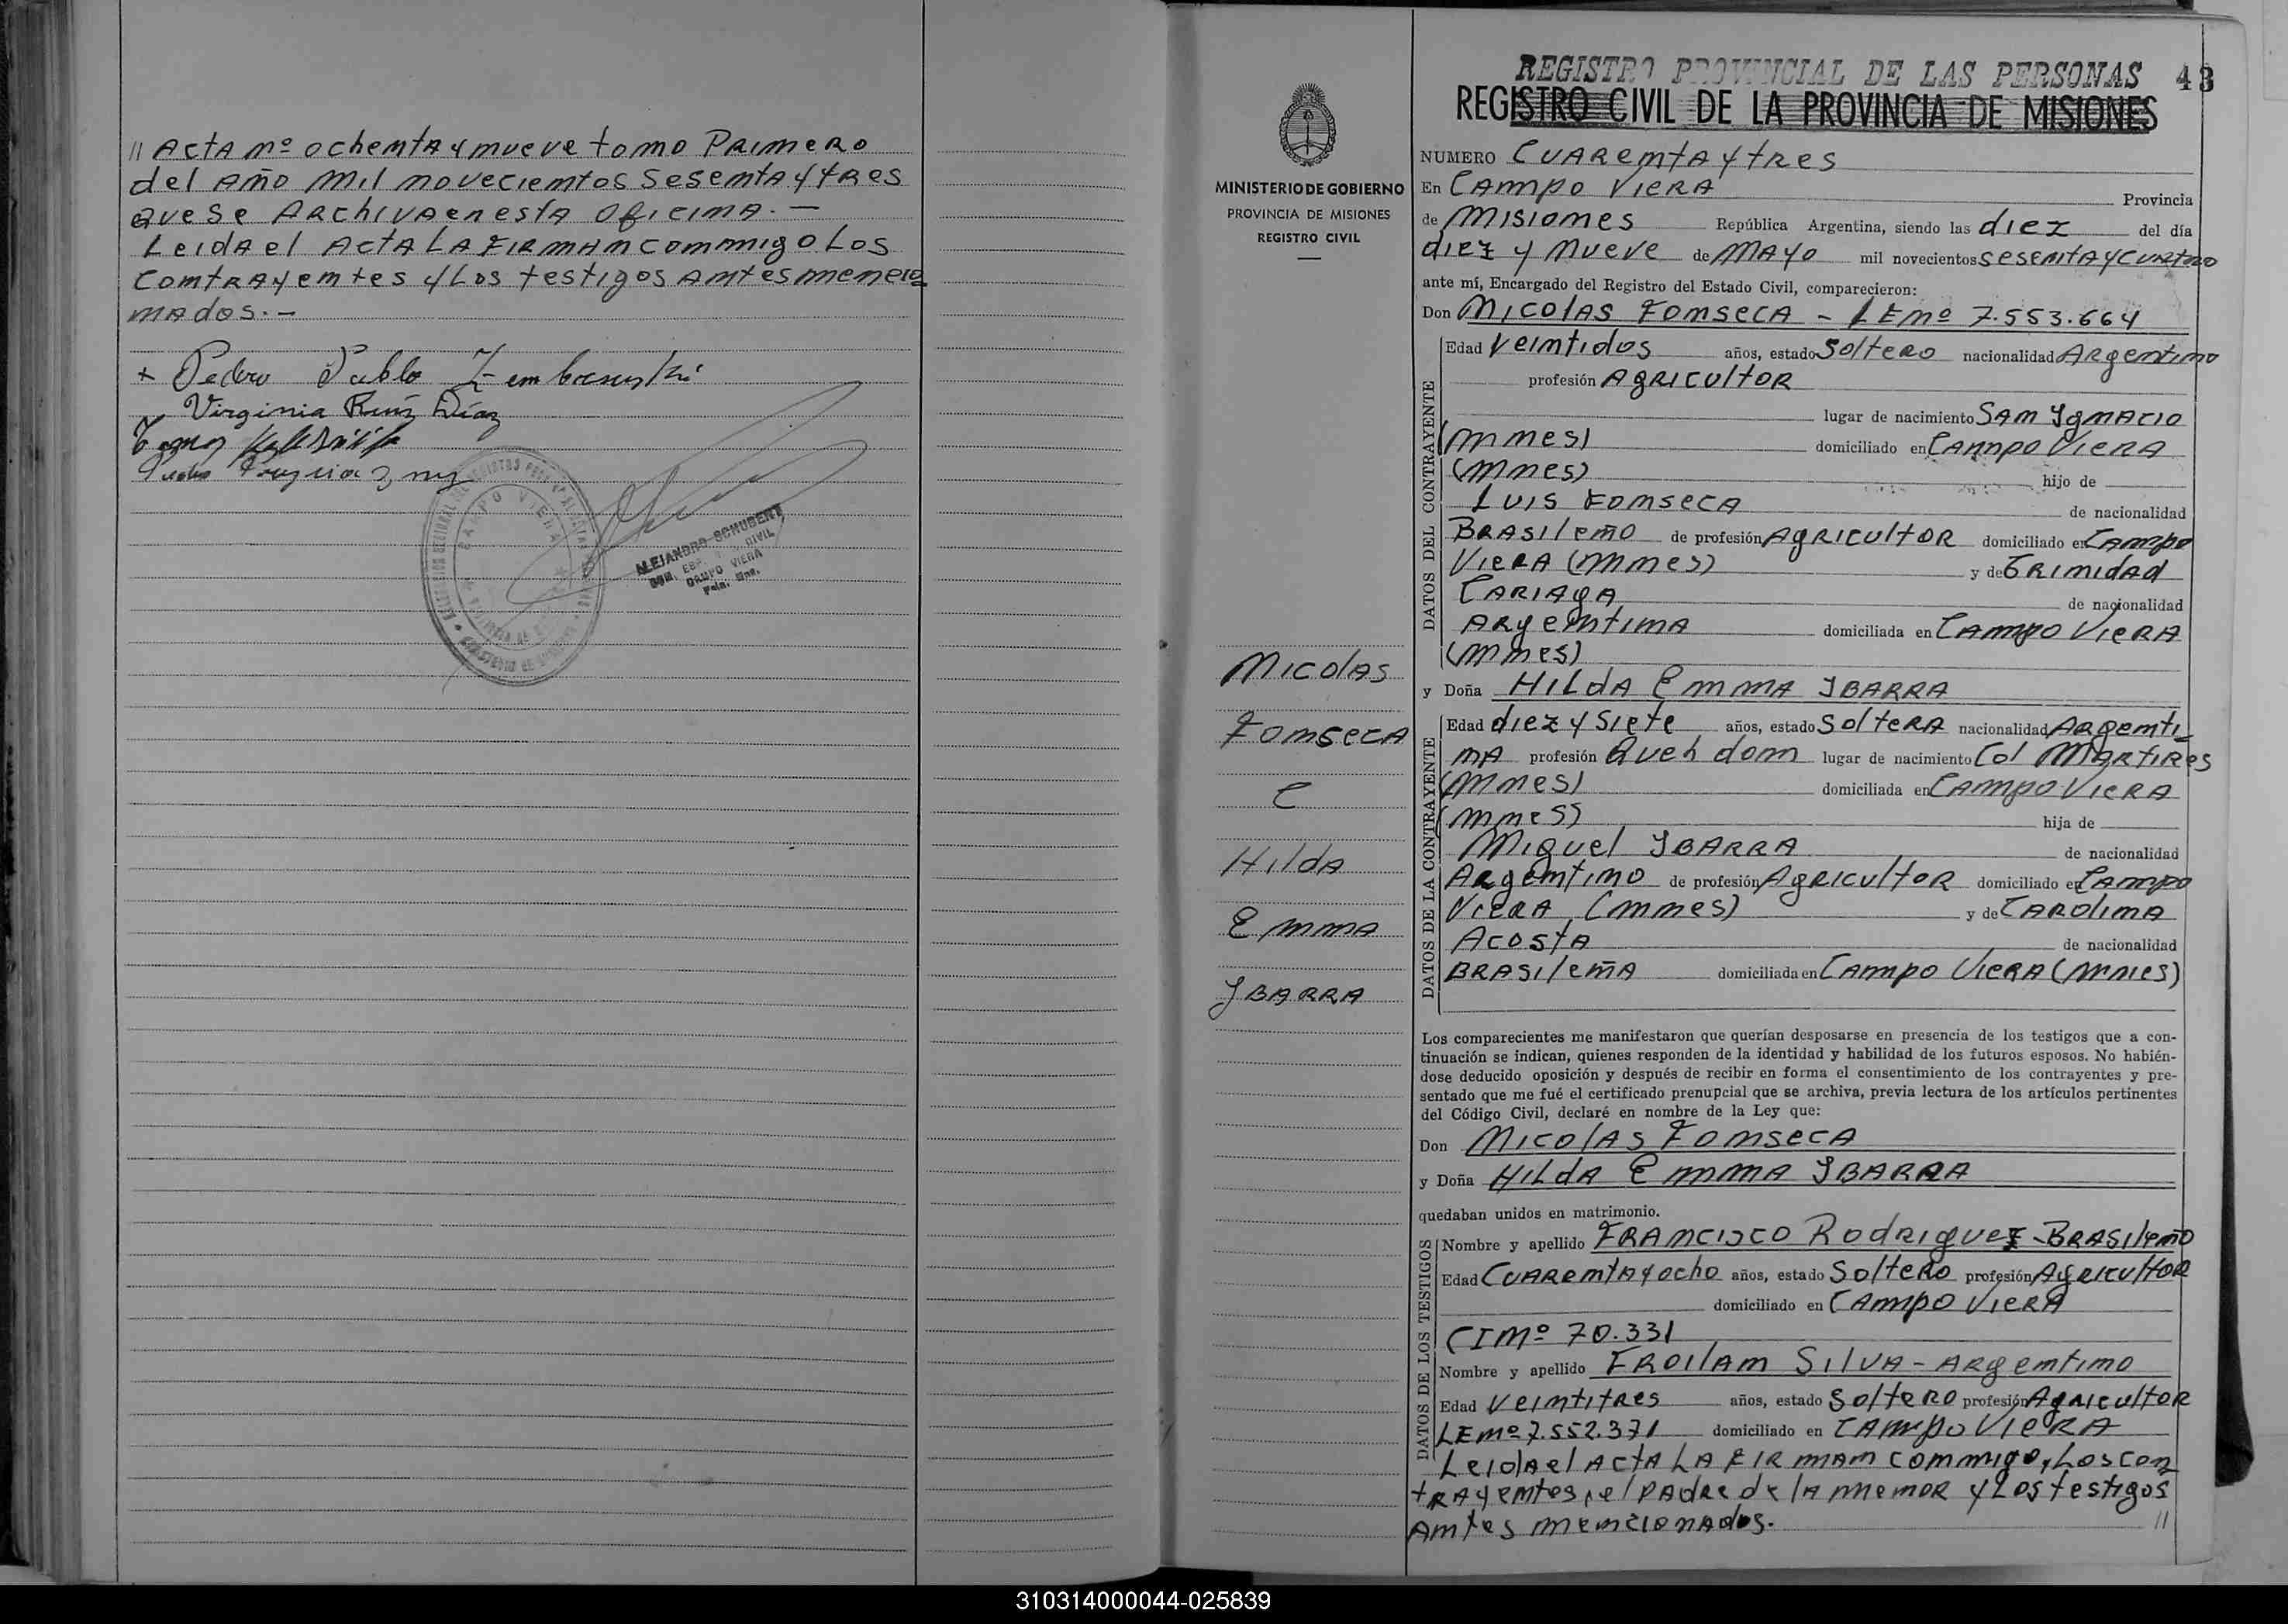 // Acta nº ochenta y nueve tomo Primero
del Año mil novecientos sesenta y tres
que se Archiva en esta oficina. —
Leida el Acta La firman conmigo Los
contrayentes y Los testigos antes mencio
nados. —
+ Pedro Pablo
Virginia Ruiz Díaz
CAMPO VIERA
ALEJANDRO SCHUBERT
CAMPO VIERA
MINISTERIO DE GOBIERNO
PROVINCIA DE MISIONES
REGISTRO CIVIL
Nicolas
Fonseca
e
Hilda
Emma
Ybarra
REGISTRO PROVINCIAL DE LAS PERSONAS 43
REGISTRO CIVIL DE LA PROVINCIA DE MISIONES
NUMERO Cuarenta y tres
En Campo Viera Provincia
de Misiones República Argentina, siendo las diez del día
diez y nueve de Mayo mil novecientos sesenta y cuatro
ante mí, Encargado del Registro del Estado Civil, comparecieron:
Don Nicolas Fonseca - LE nº 7.553.664
DATOS DEL CONTRAYENTE
Edad Veintidos años, estado Soltero nacionalidad Argentino
profesión Agricultor
lugar de nacimiento San Ygnacio
(Mnes) domiciliado en Campo Viera
(Mnes) hijo de
Luis Fonseca de nacionalidad
Brasileño de profesión Agricultor domiciliado en Campo
Viera (Mnes) y de Trinidad
Cariaga de nacionalidad
Argentina domiciliada en Campo Viera
(Mnes)
y Doña Hilda Emma Ybarra
DATOS DE LA CONTRAYENTE
Edad diez y siete años, estado Soltera nacionalidad Argenti
na profesión Queh dom lugar de nacimiento Col Martires
(Mnes) domiciliada en Campo Viera
(Mnes) hija de
Miguel Ybarra de nacionalidad
Argentino de profesión Agricultor domiciliado en Campo
Viera (Mnes) y de Carolina
Acosta de nacionalidad
Brasileña domiciliada en Campo Viera (Mnes)
Los comparecientes me manifestaron que querían desposarse en presencia de los testigos que a con-
tinuación se indican, quienes responden de la identidad y habilidad de los futuros esposos. No habién-
dose deducido oposición y después de recibir en forma el consentimiento de los contrayentes y pre-
sentado que me fué el certificado prenupcial que se archiva, previa lectura de los artículos pertinentes
del Código Civil, declaré en nombre de la Ley que:
Don Nicolas Fonseca
y Doña Hilda Emma Ybarra
quedaban unidos en matrimonio.
DATOS DE LOS TESTIGOS
Nombre y apellido Francisco Rodriguez - Brasileño
Edad Cuarenta y ocho años, estado Soltero profesión Agricultor
domiciliado en Campo Viera
CI nº 70.331
Nombre y apellido Froilan Silva - Argentino
Edad Veintitres años, estado Soltero profesión Agricultor
LE nº 7.552.371 domiciliado en Campo Viera
Leida el Acta La firman conmigo, Los con
trayentes, el padre de la menor y Los testigos
Antes mencionados. //
310314000044-025839